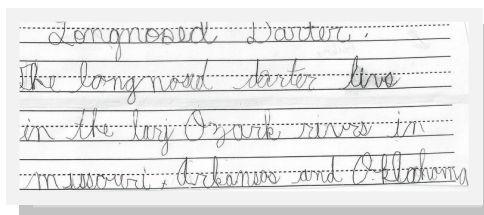 Longnosed Darter.
The longnosed darter livs
in the larj Ozark rivrs in
missouri, Arkansas and Oklahoma